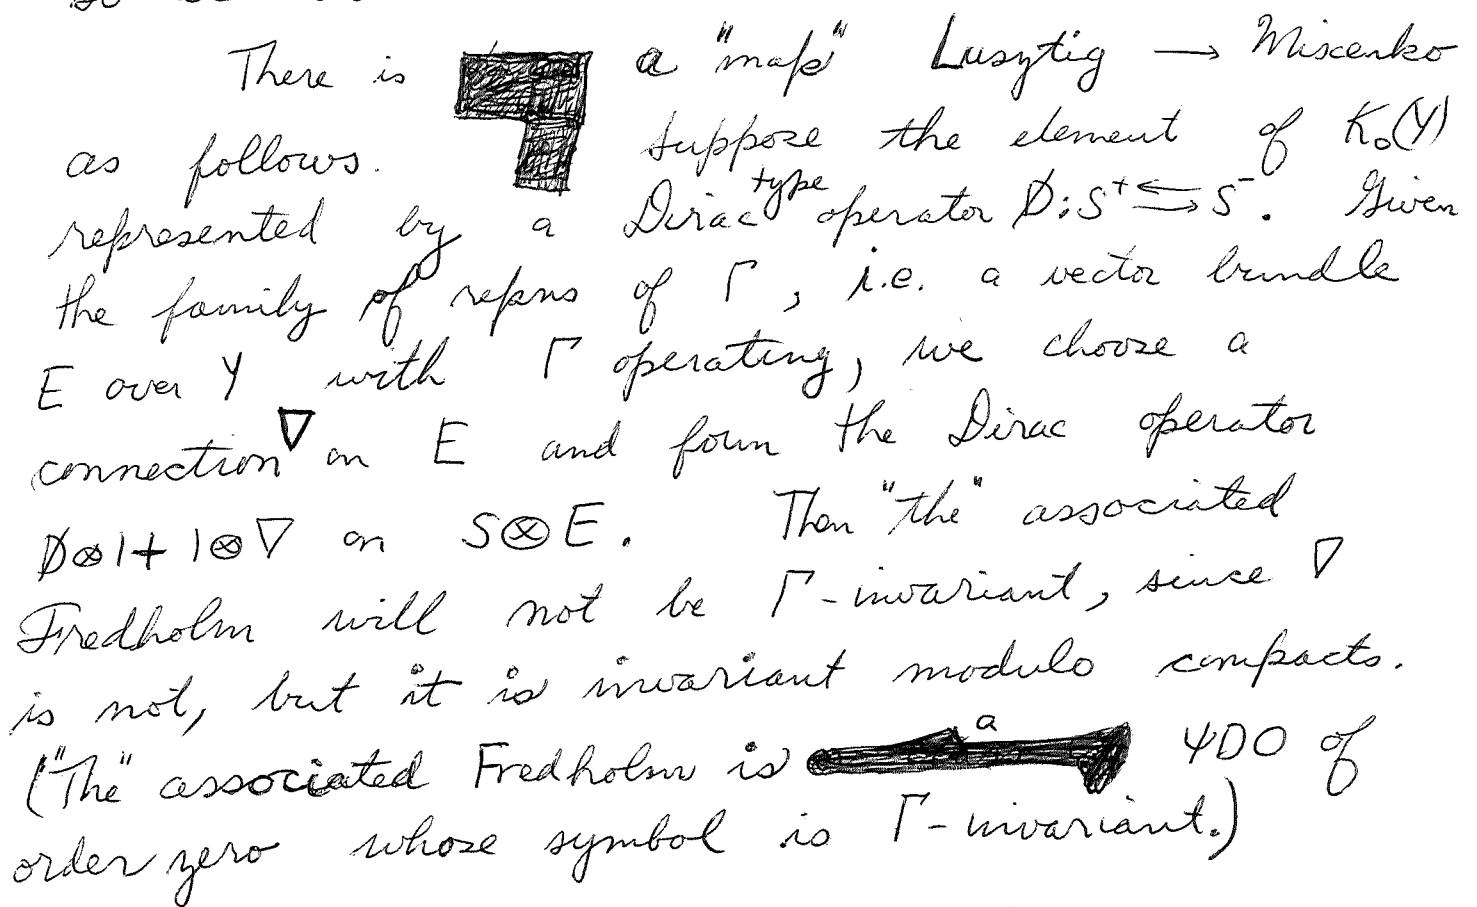 There is a "map" Lusztig → Miscenko
as follows. Suppose the element of K₀(Y)
represented by a Dirac type operator D̸: S⁺ ⇄ S⁻. Given
the family of repns of Γ, i.e. a vector bundle
E over Y with Γ operating, we choose a
connection ∇ on E and form the Dirac operator
D̸⊗1 + 1⊗∇ on S⊗E. Then "the" associated
Fredholm will not be Γ-invariant, since ∇
is not, but it is invariant modulo compacts.
("The" associated Fredholm is a ΨDO of
order zero whose symbol is Γ-invariant.)